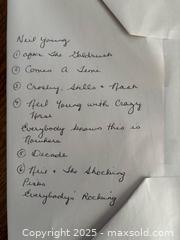 Neil Young
① After The Goldrush
② Comes A Time
③ Crosby, Stills + Nash
④ Neil Young with Crazy
Horse
Everybody knows this is
Nowhere
⑤ Decade
⑥ Neil + The Shocking
Pinks
Everybody's Rocking
Copyright 2025 - maxsold.com